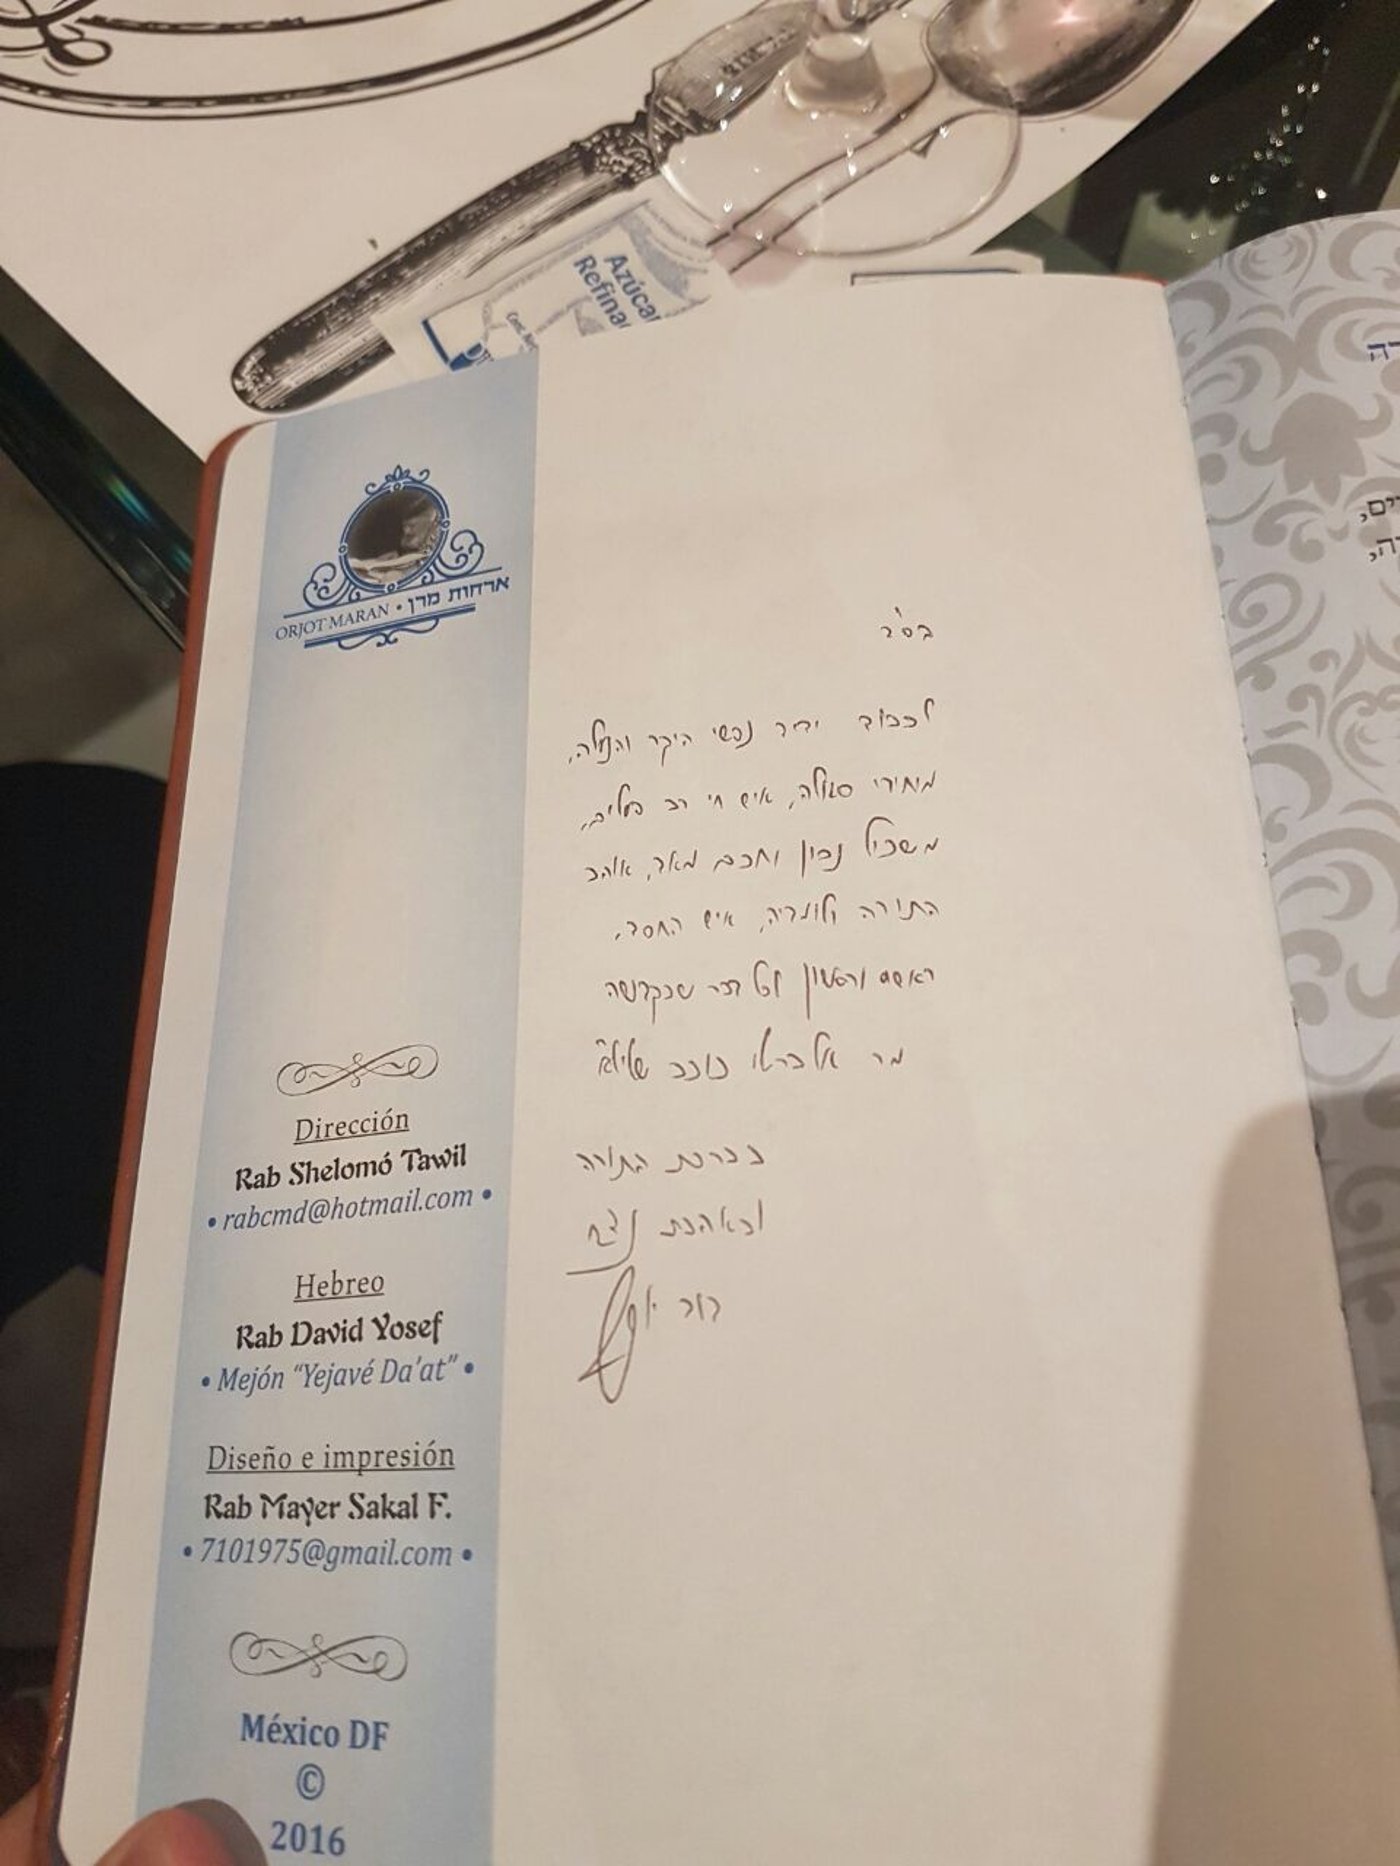 Azúcar
Refina
ארחות מרן • ORJOT MARAN
Dirección
Rab Shelomó Tawil
• rabcmd@hotmail.com •
Hebreo
Rab David Yosef
• Mejón "Yejavé Da'at" •
Diseño e impresión
Rab Mayer Sakal F.
• 7101975@gmail.com •
México DF
©
2016
בס"ד
לכבוד ידיד נפשי היקר והנעלה,
מיחידי סגולה, איש חי רב פעלים,
משכיל נבון וחכם מאד, אוהב
התורה ולומדיה, איש החסד,
ראשון לכל דבר שבקדושה
מר אלברטו שליט"א
בברכת התורה
ובאהבת נצח
דוד יוסף